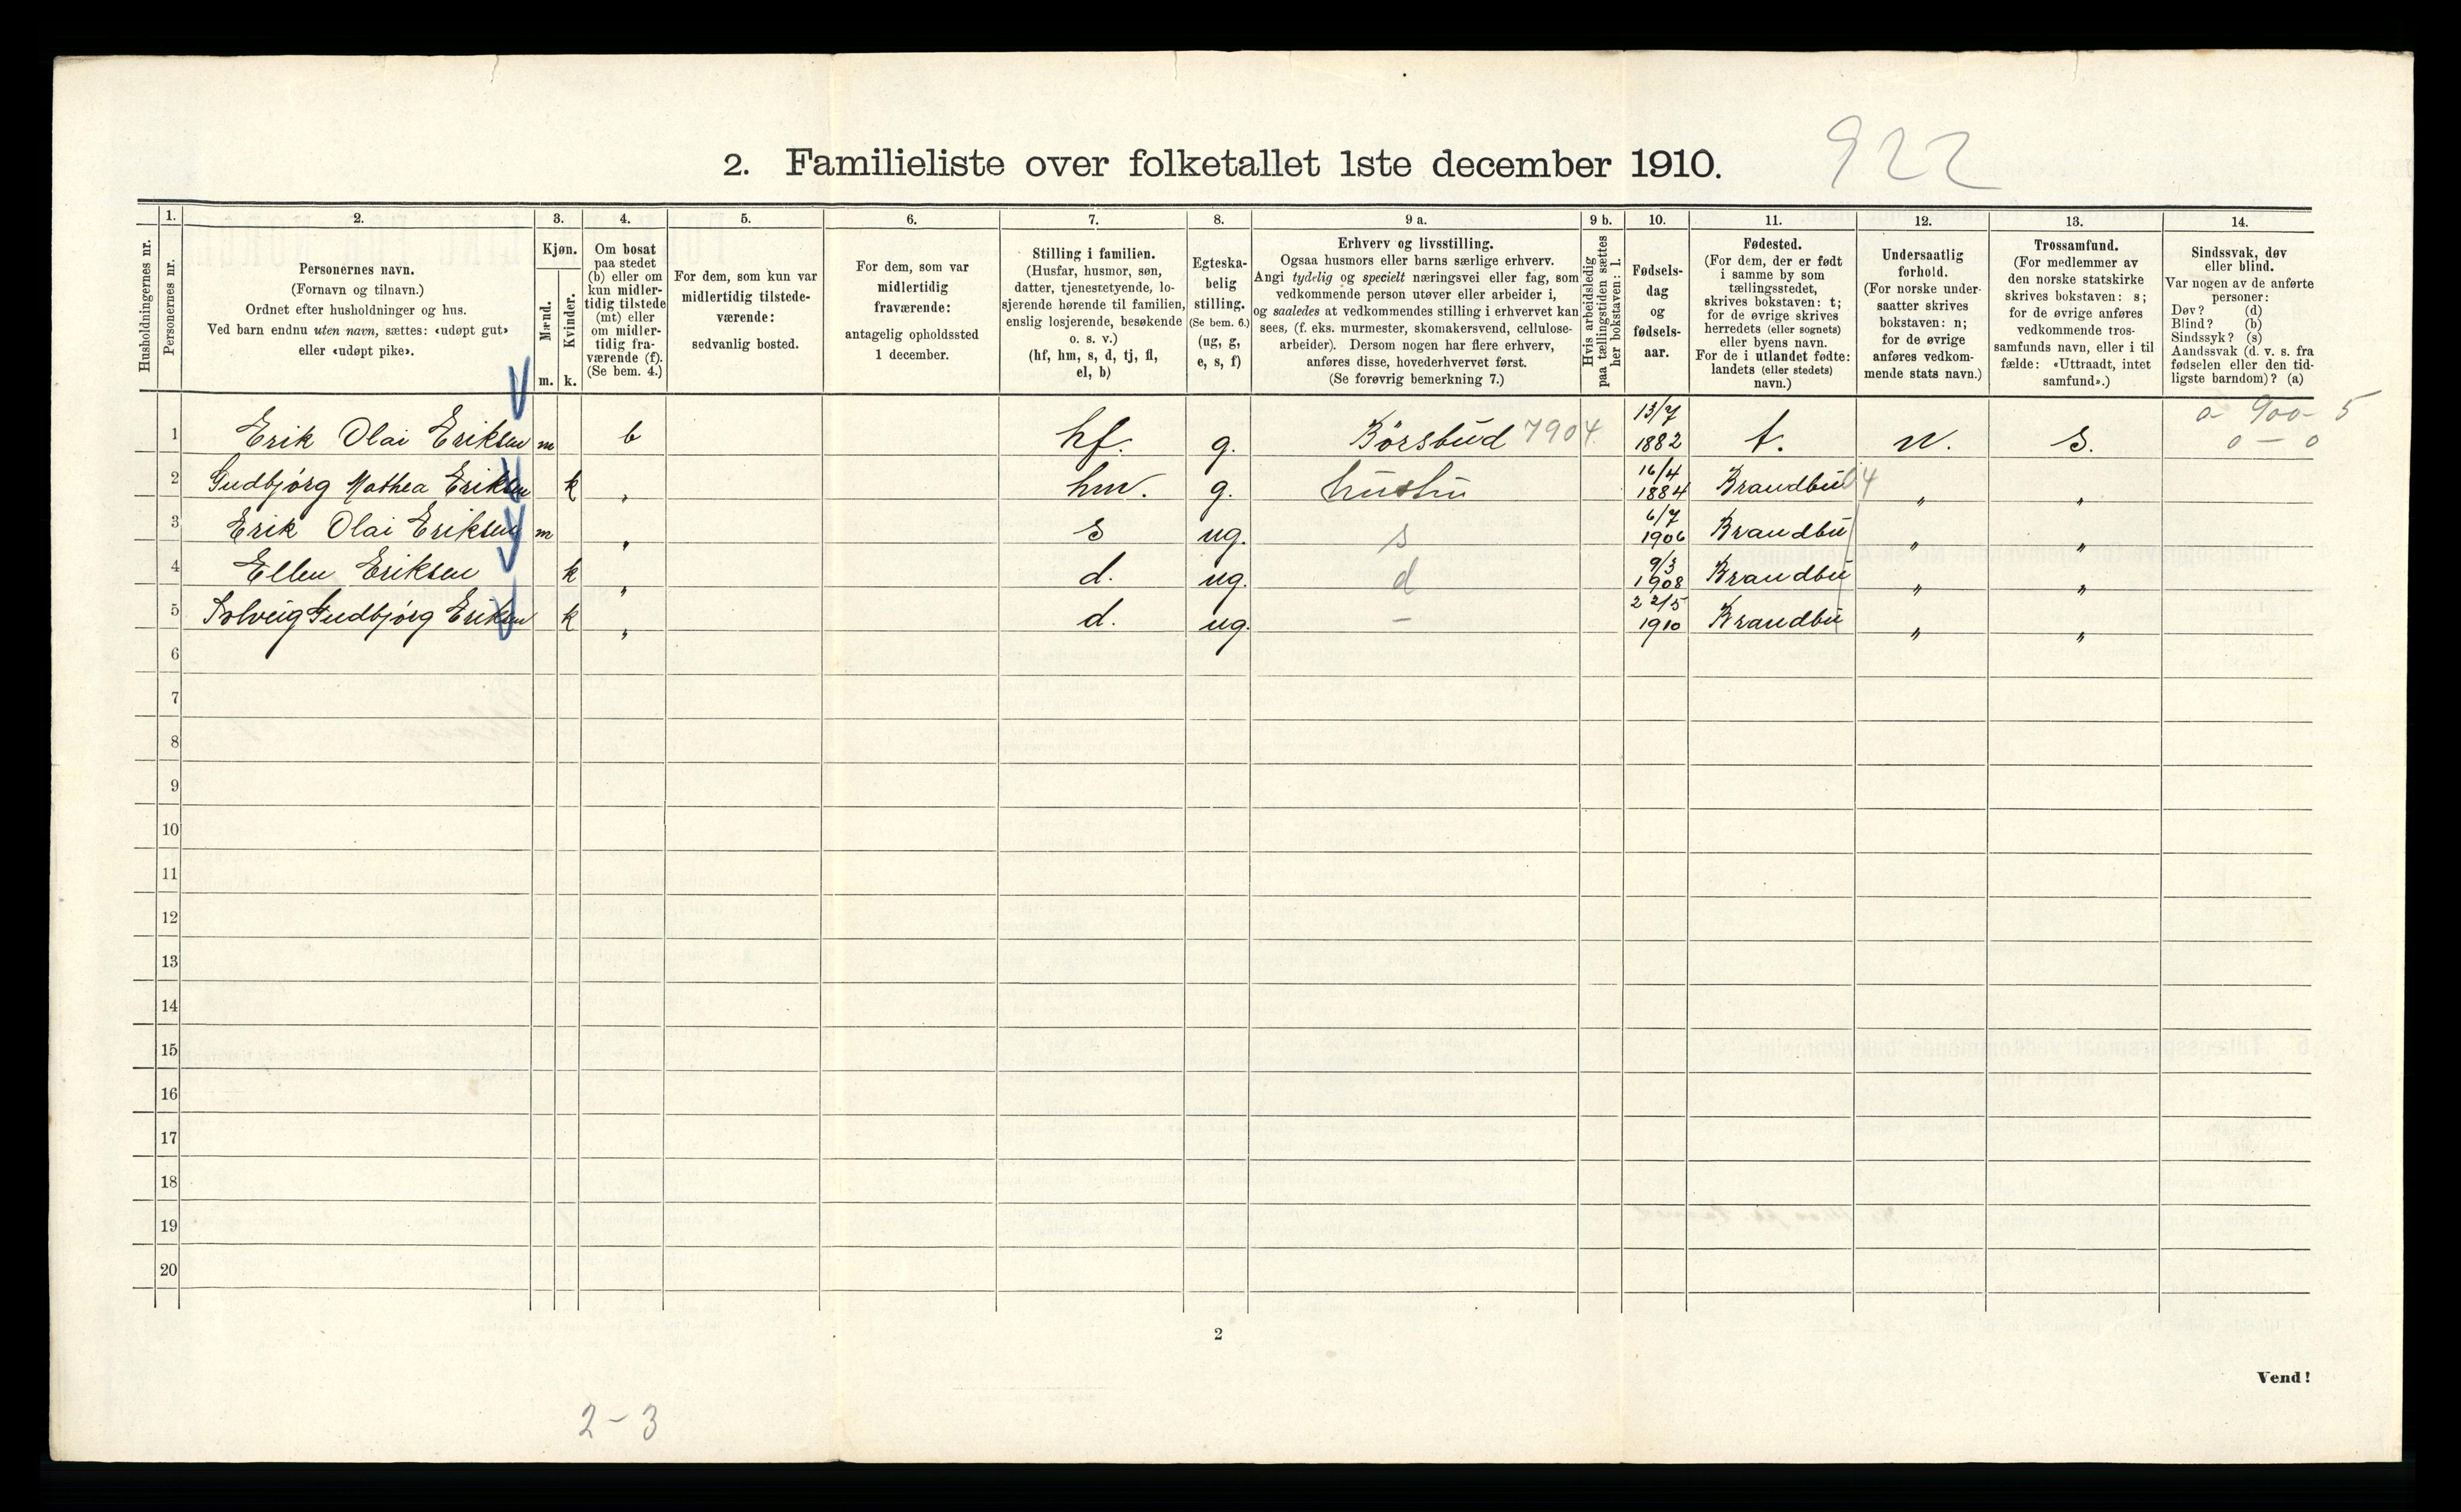 922
2. Familieliste over folketallet 1ste december 1910.
Husholdningernes nr.
1. Personernes nr.
2. Personernes navn.
(Fornavn og tilnavn.)
Ordnet efter husholdninger og hus.
Ved barn endnu uten navn, sættes: «udøpt gut»
eller «udøpt pike».
3. Kjøn.
Mænd. m.
Kvinder. k.
4. Om bosat
paa stedet
(b) eller om
kun midler-
tidig tilstede
(mt) eller
om midler-
tidig fra-
værende (f).
(Se bem. 4.)
5. For dem, som kun var
midlertidig tilstede-
værende:
sedvanlig bosted.
6. For dem, som var
midlertidig
fraværende:
antagelig opholdssted
1 december.
7. Stilling i familien.
(Husfar, husmor, søn,
datter, tjenestetyende, lo-
sjerende hørende til familien,
enslig losjerende, besøkende
o. s. v.)
(hf, hm, s, d, tj, fl,
el, b)
8. Egteska-
belig
stilling.
(Se bem. 6.)
(ug, g,
e, s, f)
9 a. Erhverv og livsstilling.
Ogsaa husmors eller barns særlige erhverv.
Angi tydelig og specielt næringsvei eller fag, som
vedkommende person utøver eller arbeider i,
og saaledes at vedkommendes stilling i erhvervet kan
sees, (f. eks. murmester, skomakersvend, cellulose-
arbeider). Dersom nogen har flere erhverv,
anføres disse, hovederhvervet først.
(Se forøvrig bemerkning 7.)
9 b. Hvis arbeidsledig
paa tællingstiden sættes
her bokstaven: l.
10. Fødsels-
dag
og
fødsels-
aar.
11. Fødested.
(For dem, der er født
i samme by som
tællingsstedet,
skrives bokstaven: t;
for de øvrige skrives
herredets (eller sognets)
eller byens navn.
For de i utlandet fødte:
landets (eller stedets)
navn.)
12. Undersaatlig
forhold.
(For norske under-
saatter skrives
bokstaven: n;
for de øvrige
anføres vedkom-
mende stats navn.)
13. Trossamfund.
(For medlemmer av
den norske statskirke
skrives bokstaven: s;
for de øvrige anføres
vedkommende tros-
samfunds navn, eller i til
fælde: «Uttraadt, intet
samfund».)
14. Sindssvak, døv
eller blind.
Var nogen av de anførte
personer:
Døv? (d)
Blind? (b)
Sindssyk? (s)
Aandssvak (d. v. s. fra
fødselen eller den tid-
ligste barndom)? (a)
0 - 900 - 5
1 Erik Olai Eriksen m b hf. g. Börsbud 7904. 13/7 1882 t. n. s. 0 — 0
2 Gudbjörg Mathea Eriksen k „ hm. g. hustru 16/4 1884 Brandbu 04 „ „
3 Erik Olai Eriksen m „ s ug. s 6/7 1906 Brandbu „ „
4 Ellen Eriksen k „ d. ug. d 9/3 1908 Brandbu „ „
5 Solveig Gudbjörg Eriksen k „ d. ug. – 22/5 1910 Brandbu „ „
6
7
8
9
10
11
12
13
14
15
16
17
18
19
20
2
Vend!
2-3